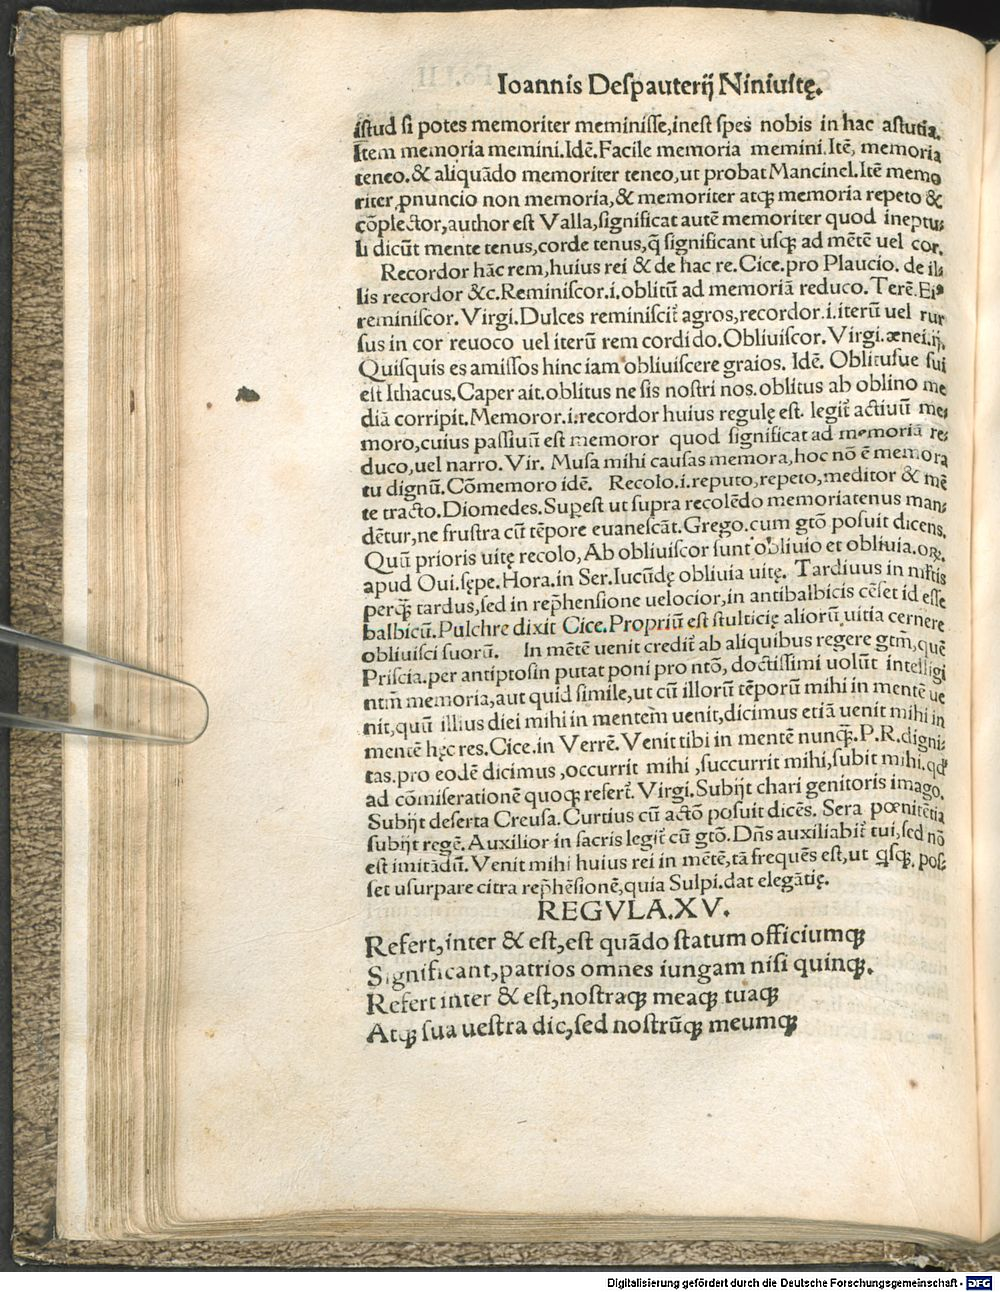 Ioannis Deſpauterij Niniuitę.
iſtud ſi potes memoriter meminiſſe,ineſt ſpes nobis in hac aſtutia.
Item memoria memini.Idē.Facile memoria memini.Itē, memoria
teneo.& aliquādo memoriter teneo,ut probat Mancinel.Itē memo
riter ꝓnuncio non memoria,& memoriter atqꝫ memoria repeto &
cōplector,author eſt Valla,ſignificat autē memoriter quod ineptu⸗
li dicūt mente tenus,corde tenus,q̄ ſignificant uſqꝫ ad mētē uel cor.
Recordor hāc rem,huius rei & de hac re.Cice.pro Plaucio. de il⸗
lis recordor &c.Reminiſcor.i.oblitū ad memoriā reduco.Terē.Ei⁹
reminiſcor.Virgi.Dulces reminiſcit᷑ agros,recordor.i.iterū uel rur
ſus in cor reuoco uel iterū rem cordi do.Obliuiſcor.Virgi.ænei.ij.
Quiſquis es amiſſos hinc iam obliuiſcere graios. Idē. Oblituſue ſui
eſt Ithacus.Caper ait.oblitus ne ſis noſtri nos.oblitus ab oblino me
diā corripit.Memoror.i.recordor huius regulę eſt. legit᷑ actiuū me⸗
moro,cuius paſſiuū eſt memoror quod ſignificat ad memoriā re⸗
duco,uel narro.Vir. Muſa mihi cauſas memora,hoc nō ē memora
tu dignū.Cōmemoro idē. Recolo.i.reputo,repeto,meditor & mē
te tracto.Diomedes.Supeſt ut ſupra recolēdo memoriatenus man⸗
dētur,ne fruſtra cū tēpore euaneſcāt.Grego.cum gtō poſuit dicens.
Quū prioris uitę recolo, Ab obliuiſcor ſunt obliuio et obliuia.oꝝ.
apud Oui.ſępe.Hora.in Ser.Iucūdę obliuia uitę. Tardiuus in nr̄tis
perqꝫ tardus,ſed in rep̄henſione uelocior,in antibalbicis cēſet id eſſe
balbicū.Pulchre dixit Cice.Propriū eſt ſtulticię aliorū uitia cernere
obliuiſci ſuorū. In mētē uenit credit᷑ ab aliquibus regere gtm̄,quē
Priſcia.per antiptoſin putat poni pro ntō, doctiſſimi uolūt intelligi
ntm̄ memoria,aut quid ſimile,ut cū illorū tēporū mihi in mentē ue
nit,quū illius diei mihi in mentem uenit,dicimus etiā uenit mihi in
mentē hęc res.Cice.in Verrē.Venit tibi in mentē nunqꝫ.P.R.digni⸗
tas.pro eodē dicimus ,occurrit mihi ,ſuccurrit mihi,ſubit mihi.qd᷑
ad cōmiſerationē quoqꝫ refert᷑. Virgi.Subijt chari genitoris imago.
Subijt deſerta Creuſa.Curtius cū actō poſuit dicēs. Sera pœnitētia
ſubijt regē.Auxilior in ſacris legit᷑ cū gtō.Dn̄s auxiliabit᷑ tui,ſed nō
eſt imitādū.Venit mihi huius rei in mētē,tā frequēs eſt,ut qſqꝫ.poſ⸗
ſet uſurpare citra rep̄hēſionē,quia Sulpi.dat elegātię.
REGVLA.XV.
Refert,inter & eſt,eſt quādo ſtatum officiumqꝫ
Significant,patrios omnes iungam niſi quinqꝫ.
Refert inter & eſt,noſtraqꝫ meaqꝫ tuaqꝫ
Atqꝫ ſua ueſtra dic,ſed noſtrūqꝫ meumqꝫ
Digitalisierung gefördert durch die Deutsche Forschungsgemeinschaft - DFG